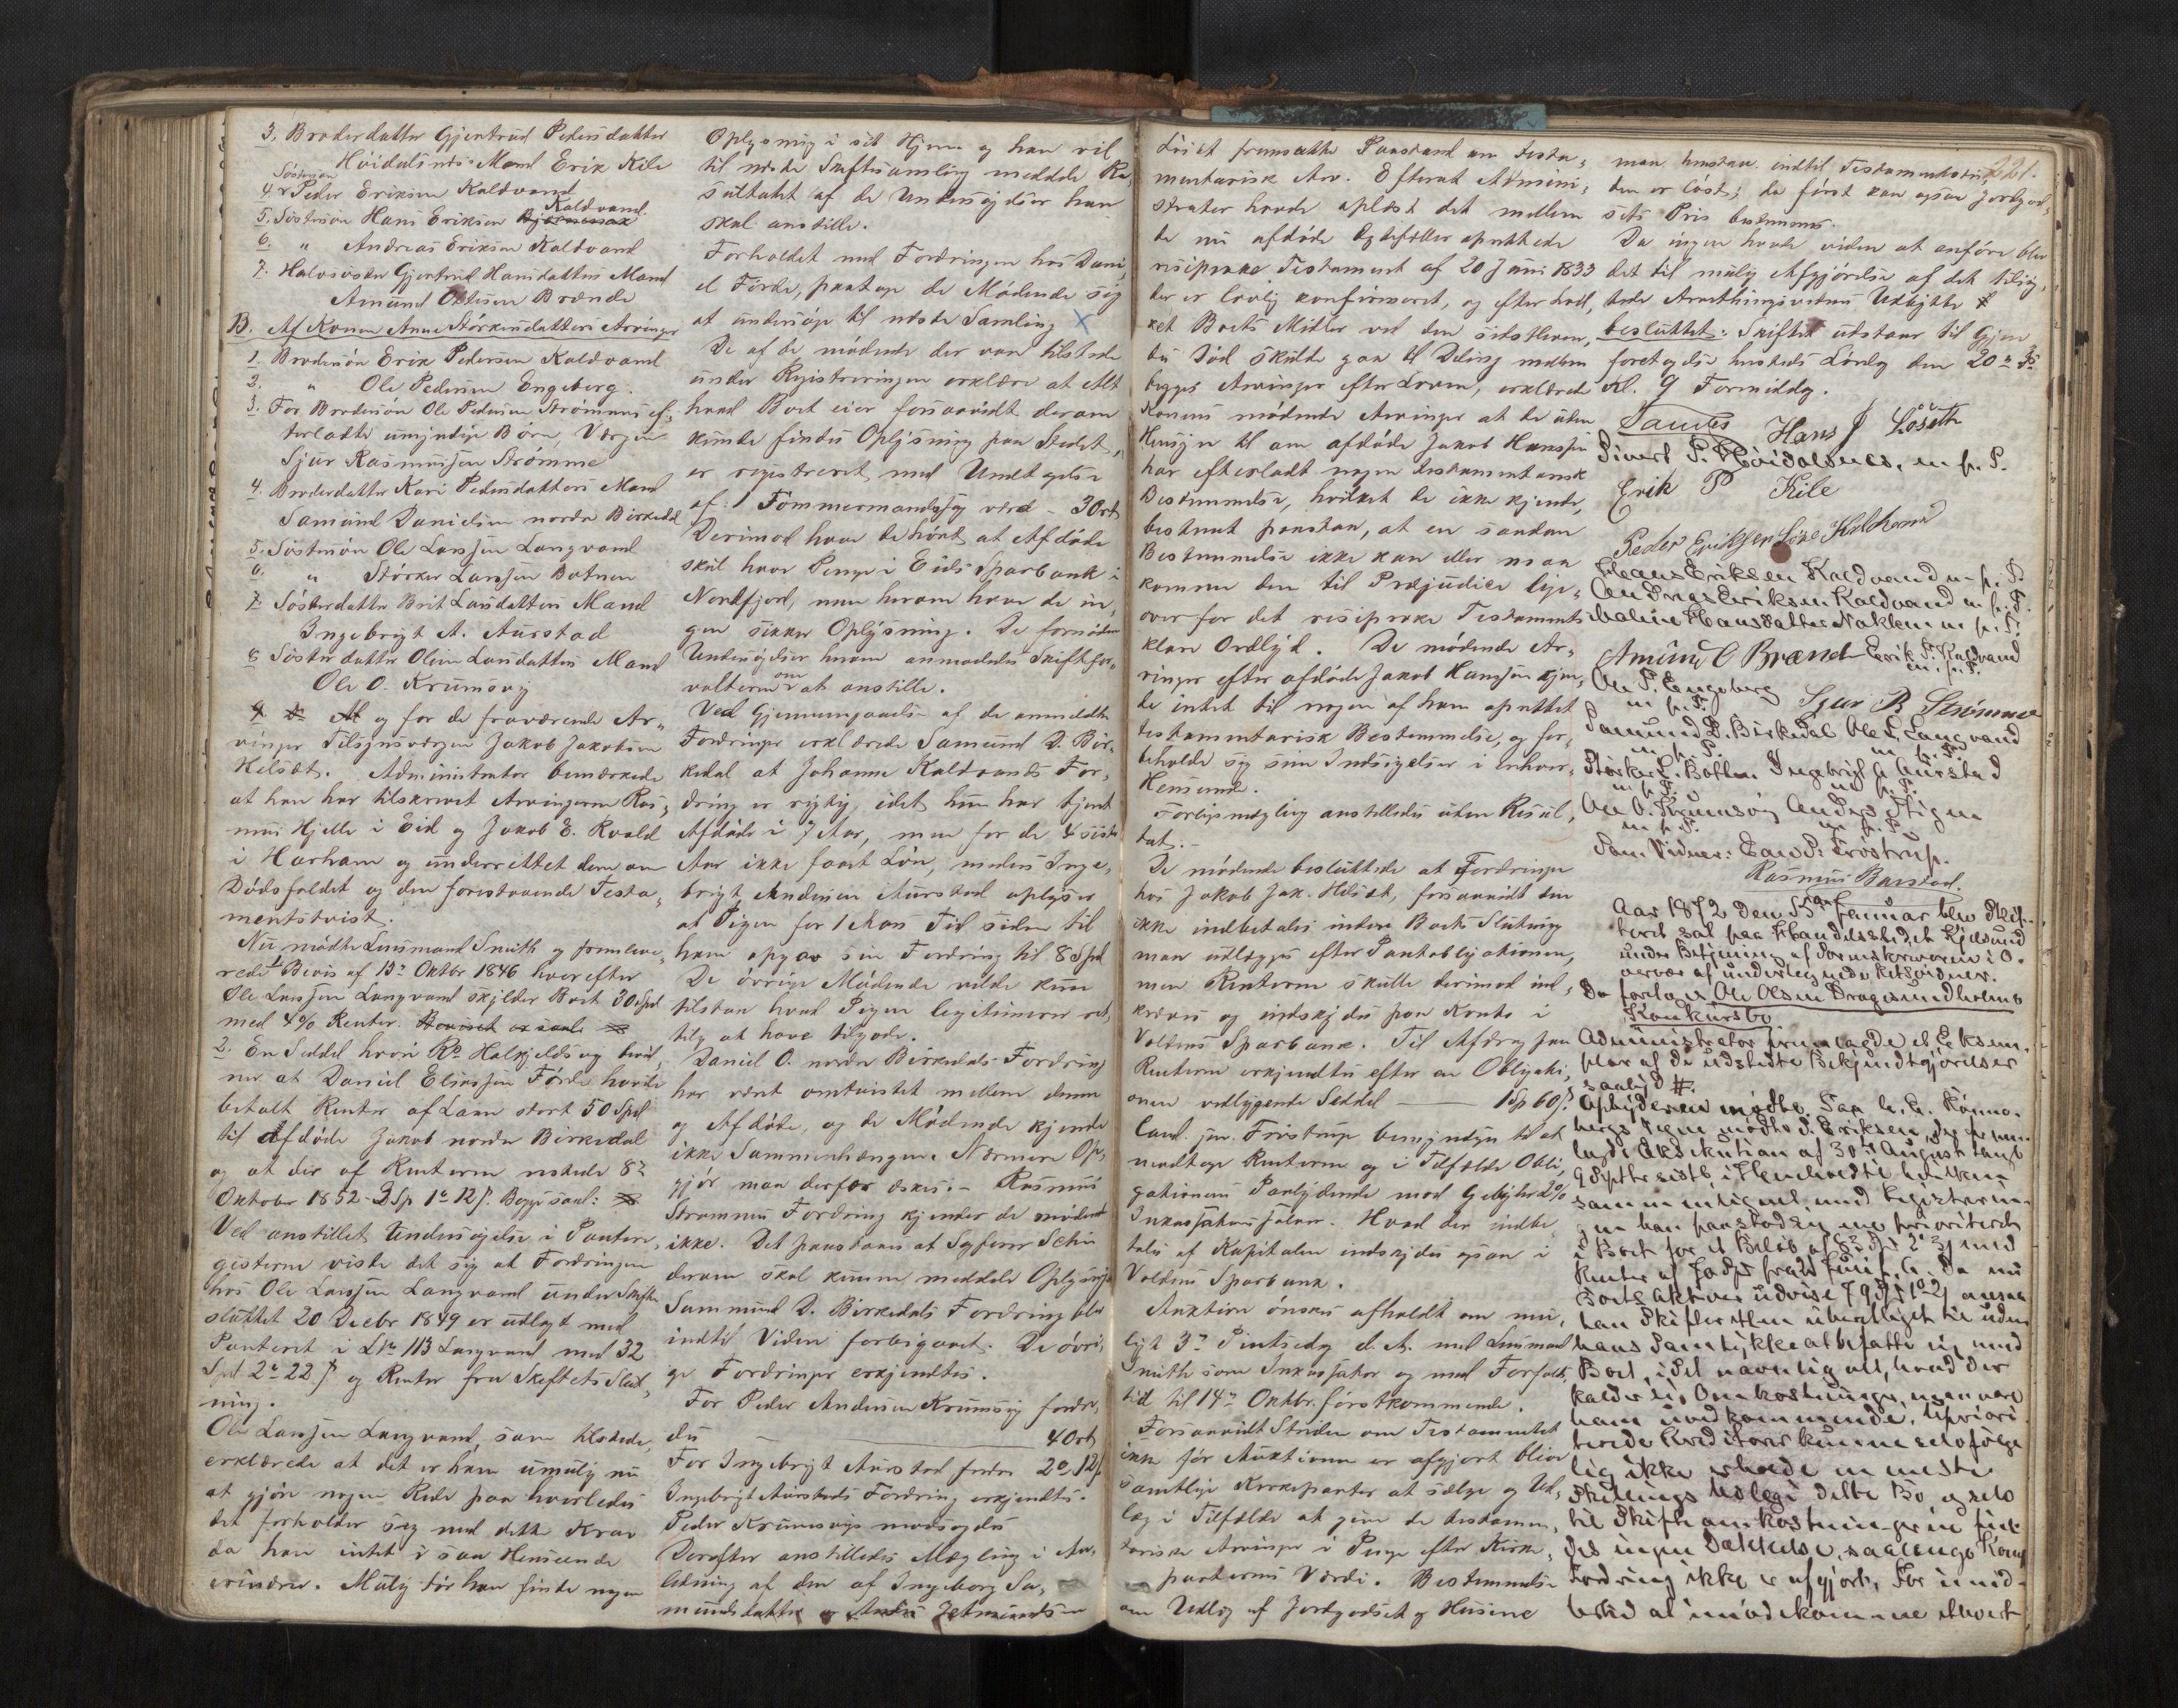 3. Broderdatter Gjertrud Pedersdatter
Höidalsnes's Mand Erik Kile
Söstersön
4. Peder Eriksen Kaldvand
Kaldvand
5. Söstersön Hans Eriksen
6. " Andreas Eriksen Kaldvand
7. Halvsöster Gjertrud Hansdatters Mand
Amund Olsen Brænde
B. Af Konen Anne Störkersdatters Arvinger
1. Brodersön Erik Pedersen Kaldvand
2. " Ole Pedersen Engeberg.
3. For Brodersön Ole Pedersen Strömmens ef-
terladte umyndige Börn, Værgen
Sjur Rasmussen Strömme
4. Broderdatter Kari Pedersdatters Mand
Samund Danielsen nordre Birkedal
5. Söstersön Ole Larssen Langvand
6. " Störker Larssen Botnen
7. Sösterdatter Brit Larsdatters Mand
Ingebrigt A. Aurstad
8. Söster datter Oline Larsdatters Mand
Ole O. Krumsvig
og for de fraværende Ar-
vinger Tilsynsværgen Jakob Jakobsen
Helset. Administrator bemærkede
at han har tilskrevet Arvingerne Ras-
mus Hjelle i Eid og Jakob E. Kvald
i Harham og underrettet dem om
Dödsfaldet og den forestaaende Testa-
mentstvist.
Nu mödte Lensmand Smith og fremleve-
rede 1 Bevis af 13de Oktbr 1846 hvorefter
Ole Larssen Langvand skylder Boet 30 Spd
med 4% Renter.
2. En Seddel hvori Rs Halkjelsvig bevid-
ner at Daniel Eliassen Förde havde
betalt Renter af Laan stort 50 Spd
til Afdöde Jakob nordre Birkedal
og at der af Renterne restede 8de
Oktober 1852 - 3 Sp 1 o 12 s. Begge saal:
Ved anstillet Undersögelse i Pantere-
gisterne viste det sig at Fordringen
hos Ole Larssen Langvand under Skifte
sluttet 20 Decbr 1849 er udlagt med
Panteret i Lno 113 Langvand med 32
Spd 2 o 22 s og Renter fra Skiftets Slut-
ning.
Ole Larssen Langvand, som tilstede,
erklærede at det er ham umulig nu
at gjöre nogen Rede paa hvorledes
det forholder sig med dette Krav
da han intet i saa Henseende
erindrer. Mulig tör han finde nogen
Oplysning i sit Hjem og han vil
til næste Skiftesamling meddele Re-
sultatet af de Undersögelser han
skal anstille.
Forholdet med Fordringen hos Dani-
el Förde, paatoge de Mödende sig
at undersöge til næste Samling
De af de mödende der var tilstede
under Registreringen erklære at Alt
hvad Boet eier forsaavidt derom
kunde findes Oplysning paa Stedet,
er registreret med Undtagelse
af: 1 Tömmermandssag værd - 30 s
Derimod have de hört at Afdöde
skal have Penge i Eids Sparbank i
Nordfjord, men herom have de in-
gen sikker Oplysning. De fornödne
Undersögelser herom anmodedes Skiftefor-
valteren om at anstille.
Ved Gjennemgaaelse af de anmeldte
Fordringer erklærede Samund D. Bir-
kedal at Johanne Kaldvands For-
dring er rigtig, idet hun har tjent
Afdöde i 7 Aar, men for de 4 sidste
Aar ikke faaet Lön, medens Inge-
brigt Andersen Aurstad oplyser
at Pigen for 1 Aars Tid siden til
ham opgav sin Fordring til 8 Spd
De övrige Mödende vilde kun
tilstaa hvad Pigen legitimerer ret-
telig at have tilgode.
Daniel O. nordre Birkedals Fordring
har været omtvistet mellem denne
og Afdöde, og de Mödende kjende
ikke Sammenhængen. Nærmere Op-
gjör maa derfor æskes. - Rasmus
Strömmes Fordring kjender de mödende
ikke. Det paastaaes at Sagförer
derom skal kunne meddele Oplysning
Sammund D. Birkedals Fordring blev
indtil Videre forbigaaet. De övri-
ge Fordringer erkjendtes.
For Peder Andersen Krumsvig fordre-
des 40 s
For Ingebrigt Aurstad fordres 2 o 12 s
Ingebrigt Aurstads Fordring erkjendtes.
Peder Krumsvigs modsagdes
Derefter anstilledes Mægling i An-
ledning af den af Ingeborg Sa-
mundsdatter og
tvist fremsatte Paastand om testa-
mentarisk Arv. Efterat Admini-
strator havde oplæst det mellem
de nu afdöde Ægtefæller oprettede
reciproke Testament af 20 Juni 1833
der er lovlig konfirmeret, og efter hvil-
ket Boets Midler ved den sidstleven-
des Död skulde gaa til Deling mellem
begges Arvinger efter Loven, erklærede
Konens mödende Arvinger at de uden
Hensyn til om afdöde Jakob Hanssen
har efterladt nogen testamentarisk
Bestemmelse, hvilket de ikke kjende,
bestemt paastaa, at en saadan
Bestemmelse ikke kan eller maa
komme dem til Præjudice lige-
over for det reciproke Testaments
klare Ordlyd. De mödende Ar-
vinger efter afdöde Jakob Hanssen kjen-
de intet til nogen af ham oprettet
testamentarisk Bestemmelse, og for-
beholde sig sine Indsigelser i enhver
Henseende.
Forligsmægling anstilledes uden Resul-
tat. -
De mödende besluttede at Fordringen
hos Jakob Jak. Helset, forsaavidt den
ikke indbetales inden Boets Slutning
maa udlægges efter Pantobligationen,
men Renterne skulle derimod ind-
kræves og indskydes paa Konto i
Voldens Sparbank. Til Afdrag paa
Renterne erkjendtes efter en Obligati-
onen vedliggende Seddel - 1 Sp 60 s.
Cand. jur. Fröstrup bemyndiges til at
modtage Renterne og i Tilfælde Obli-
gationens Paalydende mod Gebyhr 2%
Inkassations Salær. Hvad der indbe-
tales af Kapitalen indskydes ogsaa i
Voldens Sparbank.
Auktion önskes afholdt om mu-
ligt 3de Pintsedag d.A. med Lensmand
Smith som Inkassator og med Forfalds-
tid til 14de Oktbr. förstkommende.
Forsaavidt Striden om Testamentet
ikke för Auktionen er afgjort blive
samtlige Kirkeparter at sælge og Ud-
læg i Tilfælde at give de testamen-
tariske Arvinger i Penge efter Kirke-
parternes Værdi. Bestemmelse
om Udlæg af Jordgodset og Husene
221.
maa henstaa indtil Testamentstvi-
sten er löst; da först kan ogsaa Jordgod-
sets Pris bestemmes.
Da ingen havde videre at anföre blev
det til mulig Afgjörelse af det tilsig-
tede
besluttet: Skiftet udstaar til Gjen-
foretagelse hersteds Lördag den 20de ds
Kl. 9 Formiddag.
Landes Hans J Löseth
Sivert P. Höidalsnes, m. p. P.
Erik P Kile
Peder Eriksen
Hans Eriksen Kaldvand m. p. P.
Andreas Eriksen Kaldvand m. p. P.
Hansdatter Naklen m. p. P.
Amund O Brænde Erik P. Kaldvand
m. p. P.
Ole P. Engeberg Sjur R Strömme
m p. P.
Samund D. Birkedal Ole L. Langvand
m. p. P. m. p. P.
Störker L. Botten Ingebrigt A Aurstad
m p. P. m p. P.
Ole O. Krumsvig Anders Stigen
m. p. P. m. p. P.
Som Vidner: Fröstrup.
Rasmus Barstad.
Aar 1872 den Januar blev Skif-
teret sat paa Handelsstedet
under Betjening af Sorenskriveren i O-
vervær af undertegnede Retsvidner.
Da foretoges Ole Olsen Dragesundholms
Konkursbo
Administrator fremlagde et Eksem-
plar af de udstedte Bekjendtgjörelser
saalyd #.
Opbyderen mödte. For
Eriksen, der frem-
lagde Eksekution af 30te August samt
sammenlignet med Registerin-
gen han paastod sig som prioriteret
i Boet for et Belöb af
Renter af Da nu
Boets Aktiver udvise ansaa
han Skifteretten uberettiget til uden
hans Samtykke at befatte sig med
Boet, idet navnlig alt, hvad der
kaldes Omkostninger, maa være
ham uvedkommende. Upriori-
terede Kreditorer kunne selvfölge-
lig ikke erholde en eneste
Skillings Udlæg i dette Bo, og selv
til Skifteomkostningerne fin-
des ingen Dækkelse, saalænge
Fordring ikke er afgjort. For imid-
lertid at imödekomme ethvert